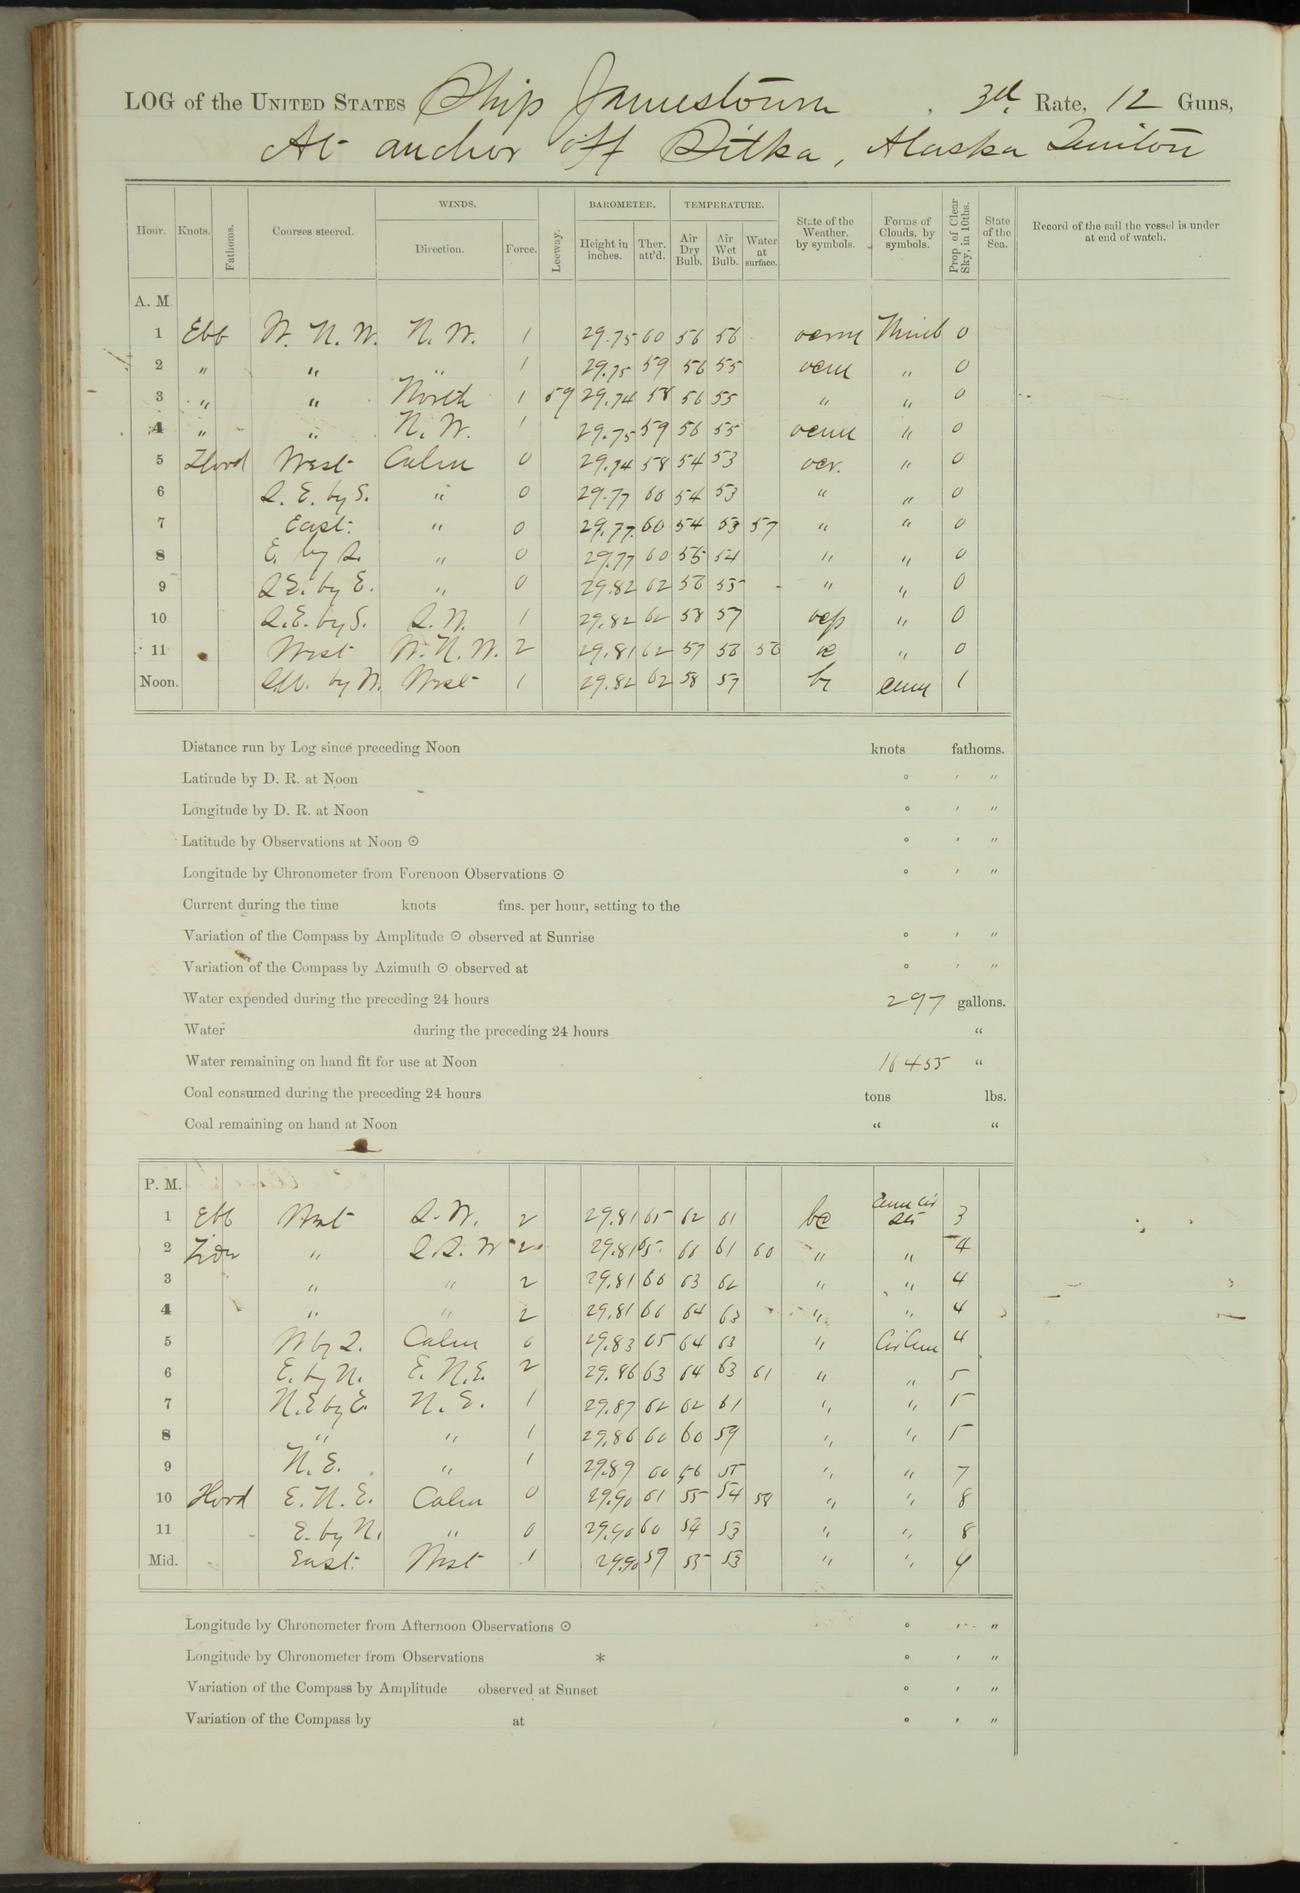 LOG of the UNITED STATES Ship Jamestown, 3d. Rate, 12 Guns,
At anchor off Sitka, Alaska
Hour. Knots. Fathoms. Courses steered. WINDS. Direction. Force. Leeway. BAROMETER. Height in inches. Ther. att'd. TEMPERATURE. Air Dry Bulb. Air Wet Bulb. Water at surface. State of the Weather, by symbols. Forms of Clouds, by symbols. Prop of Clear Sky, in 10ths. State of the Sea. Record of the sail the vessel is under at end of watch.
A. M.
1 Ebb W. N. W. N. W. 1 29.75 60 56 56 Nimb 0
2 " " " 1 29.75 59 56 55 " 0
3 " " North 1 59 29.74 58 56 55 " " 0
4 " " N. W. 1 29.75 59 56 55 " 0
5 Flood West Calm 0 29.74 58 54 53 ocr. " 0
6 S. E. by S. " 0 29.77 60 54 53 " " 0
7 East. " 0 29.77 60 54 53 57 " " 0
8 E. by S. " 0 29.77 60 55 54 " " 0
9 SE. by E. " 0 29.82 62 56 55 " " 0
10 S.E. by S. S. W. 1 29.82 62 58 57 ocp " 0
11 West W. N. W. 2 29.81 62 57 56 56 " 0
Noon. by W. West 1 29.82 62 58 57 Cum 1
Distance run by Log since preceding Noon knots fathoms.
Latitude by D. R. at Noon ° ′ ″
Longitude by D. R. at Noon ° ′ ″
Latitude by Observations at Noon ☉ ° ′ ″
Longitude by Chronometer from Forenoon Observations ☉ ° ′ ″
Current during the time knots fms. per hour, setting to the
Variation of the Compass by Amplitude ☉ observed at Sunrise ° ′ ″
Variation of the Compass by Azimuth ☉ observed at ° ′ ″
Water expended during the preceding 24 hours 297 gallons.
Water during the preceding 24 hours "
Water remaining on hand fit for use at Noon 16455 "
Coal consumed during the preceding 24 hours tons lbs.
Coal remaining on hand at Noon " "
P. M.
1 Ebb West S. W. 2 29.81 65 62 61 bc Cum Cir 3
2 " S.S. W 2 29.81 65 61 60 " " 4
3 " " 2 29.81 66 63 62 " " 4
4 " " 2 29.81 66 64 63 " " 4
5 W by S. Calm 0 29.83 65 64 63 " Cir Cum 4
6 E. by N. E. N.E. 2 29.86 63 64 63 61 " " 5
7 N.E by E. N. E. 1 29.87 62 62 61 " " 5
8 " " 1 29.86 60 60 59 " " 5
9 N. E. " 1 29.89 60 56 55 " " 7
10 Flood E. N. E. Calm 0 29.90 61 55 54 58 " " 8
11 E. by N. " 0 29.90 60 54 53 " " 8
Mid. East. West 1 29.90 59 55 53 " " 9
Longitude by Chronometer from Afternoon Observations ☉ ° ′ ″
Longitude by Chronometer from Observations * ° ′ ″
Variation of the Compass by Amplitude observed at Sunset ° ′ ″
Variation of the Compass by at ° ′ ″